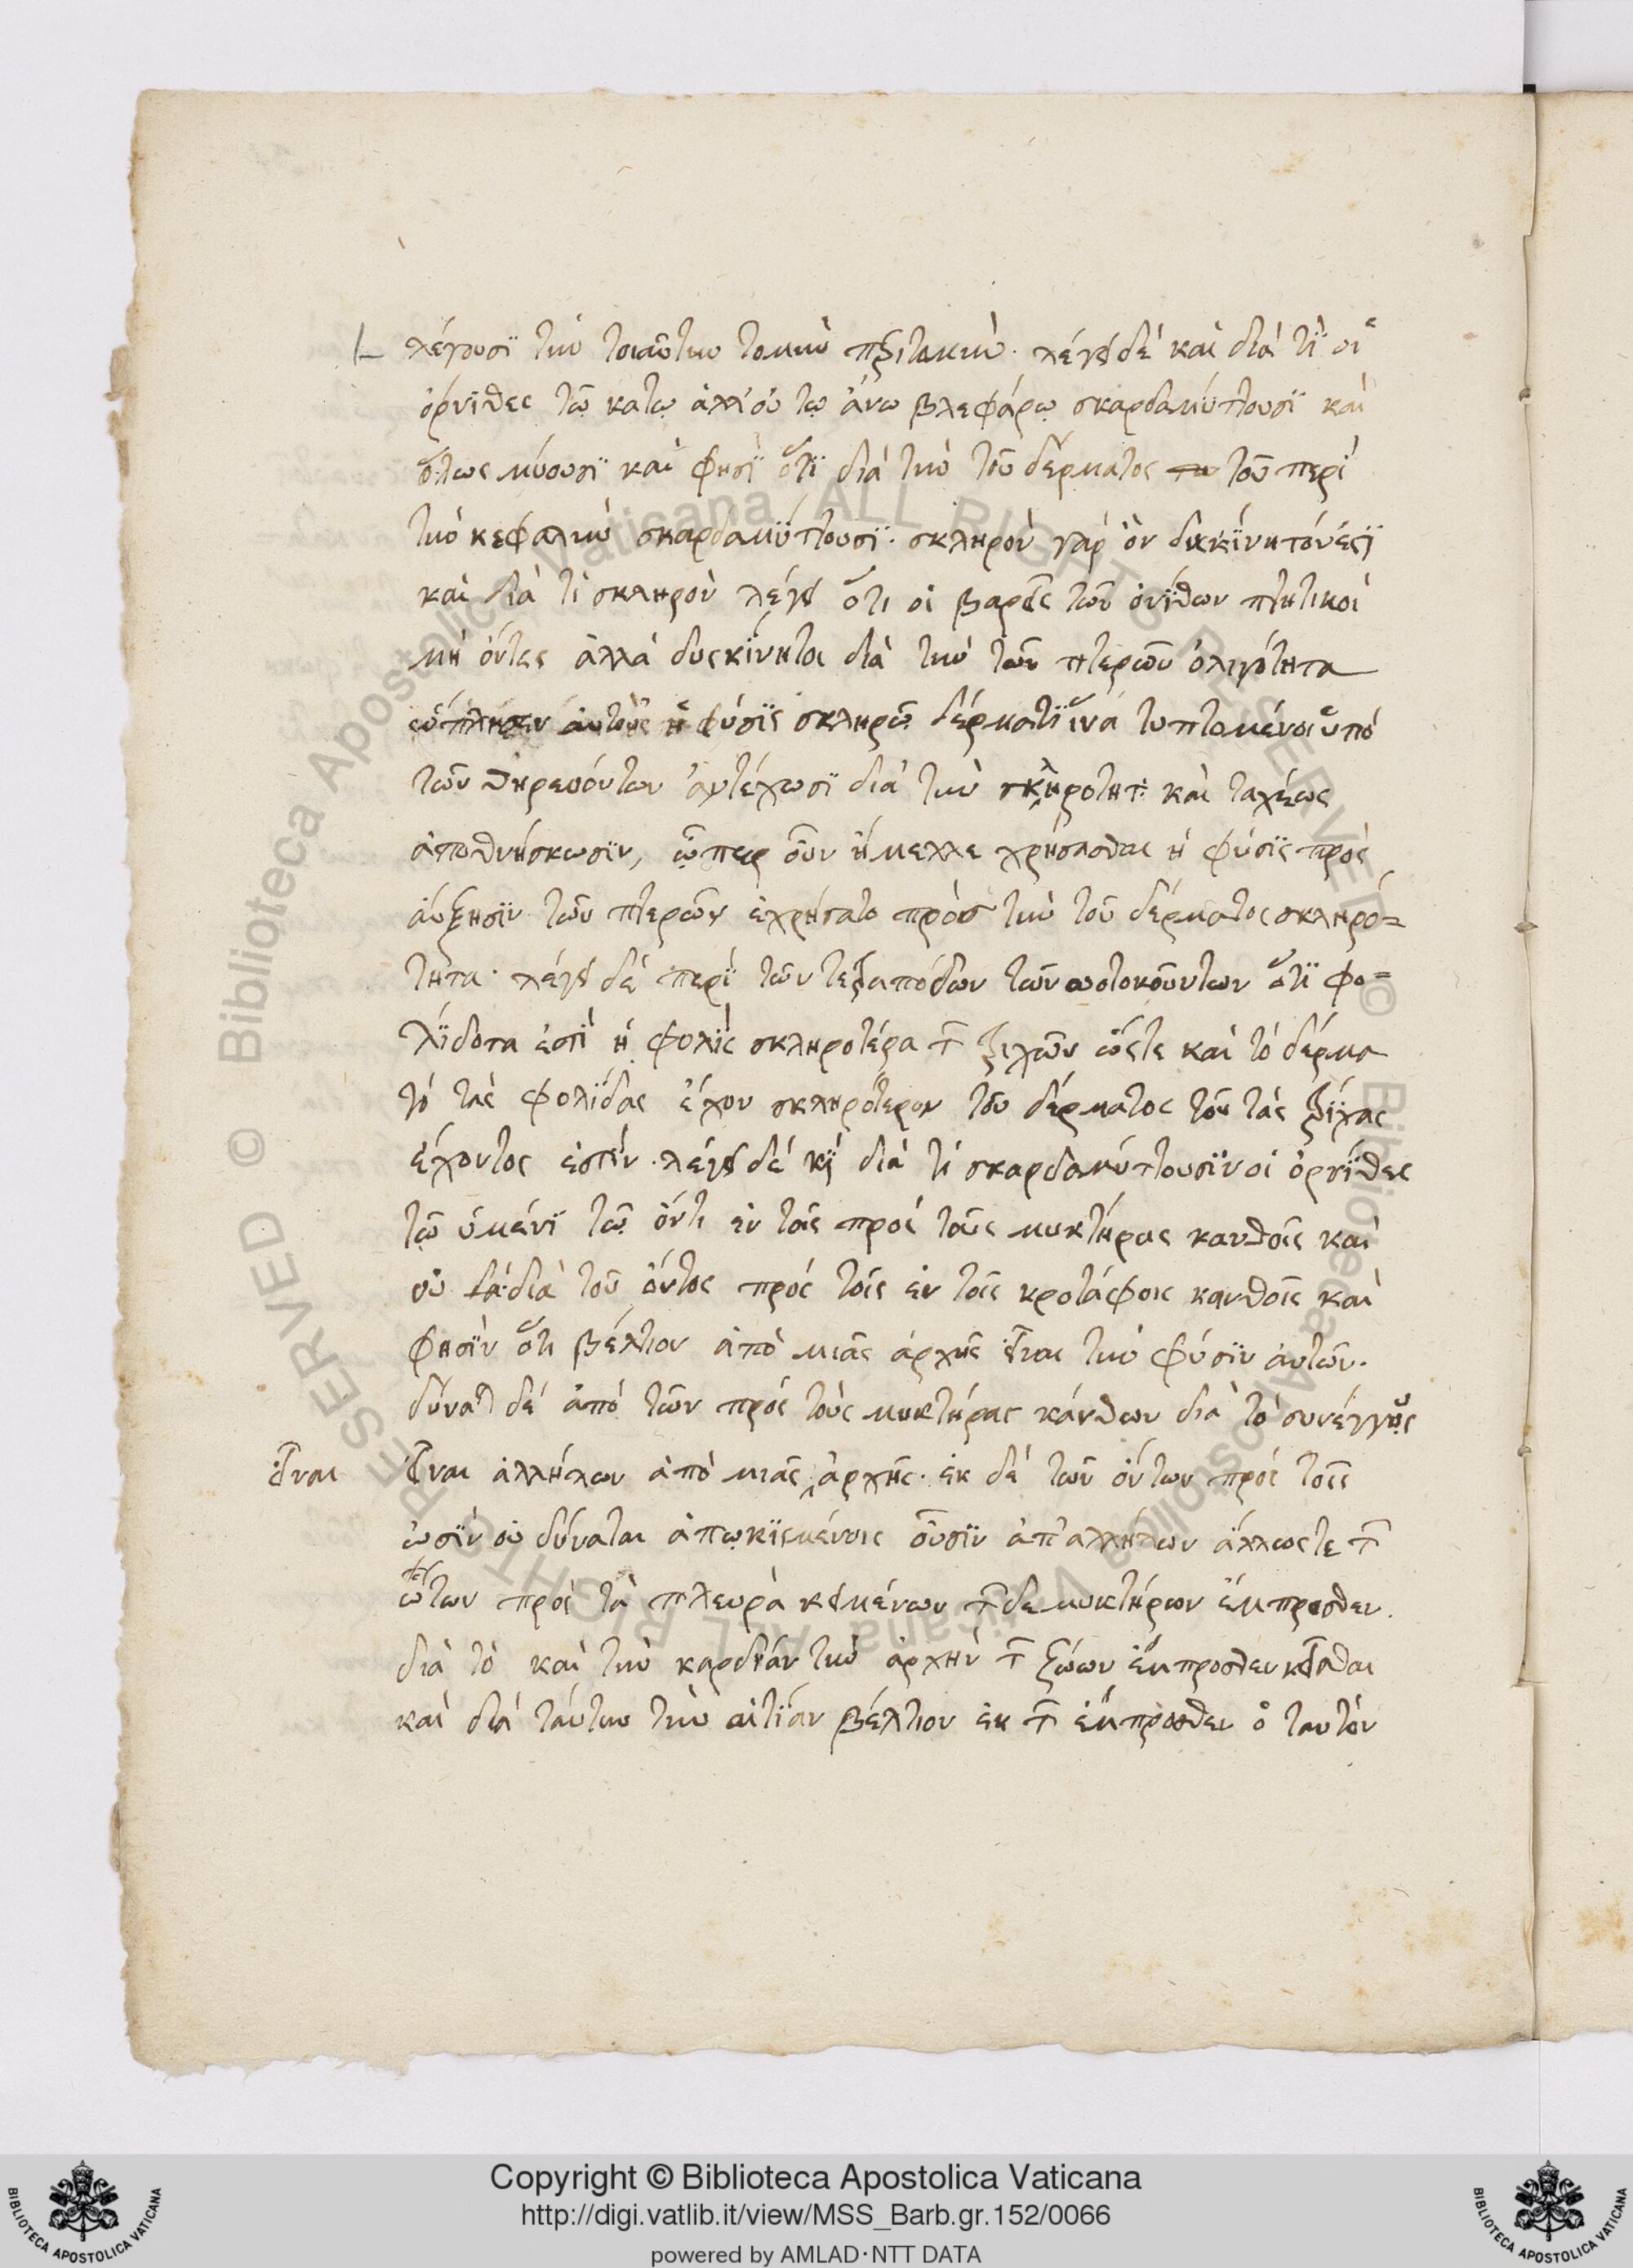 λέγουσϊ τὴν τοιαύτην τομὴν λέγει δέ καὶ διὰ τί οἱ
ὄρνιθες τῷ κατω ἀλλ' οὐ τῳ ἄνω βλεφάρῳ σκαρδαμύττουσϊ καὶ
οὕτως μύουσϊ καὶ φησϊ ὅτϊ διὰ τὴν τοῦ δέρματος τοῦ περὶ
τὴν κεφαλὴν σκαρδαμϋττουσϊ· σκληρὸν γάρ ὂν δυσκϊνητόν ἐστϊ
καὶ διὰ τί σκληρὸν λέγει ὅτι οἱ βαρεῖς τῶν ὀνίθων πτητικοὶ
μὴ ὄντες ἀλλὰ δυσκϊνητοι διὰ τὴν τῶν πτερῶν ὀλιγότητα
αὐτοὺς ἡ φύσϊς σκληρῶ δέρματϊ ἵνα τυπτομένοι ὑπό
τῶν θηρευόντων ἀντέχωσϊ διὰ τὴν σκληροτητα καὶ ταχέως
ἀποθνήσκωσϊν, ᾧπερ οὖν ἤμελλε χρήσασθαι ἡ φύσϊς πρός
αὔξησϊν τῶν πτερῶν ἐχρήσατο πρὸσ τὴν τοῦ δέρματος σκληρό=
τητα· λέγει δέ περὶ τῶν τετραπόδων τῶν ωοτοκούντων ὅτϊ φο=
λϊδοτα ἐστὶ ἡ φολϊς σκληροτέρα τῶν τριχῶν ὥστε καὶ τό δέρμα
τὸ τὰς φολϊδας ἔχον σκληρότερον τοῦ δέρματος τοῦ τὰς τρϊχας
ἔχοντος ἐστϊν· λέγει δέ καὶ διὰ τί σκαρδαμύττουσϊν οἱ ὄρνϊθες
τῷ ὑμένϊ τῷ ὄντι ἐν τοῖς πρός τοὺς μυκτήρας κανθοῖς καὶ
οὐ διὰ τοῦ ὄντος πρός τοῖς ἐν τοῖς κροτάφοις κανθοῖς καὶ
φησϊν ὅτι βέλτιον ἀπὸ μιᾶς ἀρχῆς εἶναι τὴν φύσϊν ἀυτῶν·
δύναται δέ ἀπό τῶν πρὸς τοὺς μυκτήρας κάνθων διὰ τό συνέγγυς
εἶναι εἶναι ἀλλήλων ἀπὸ μιᾶς ἀρχῆς· ἐκ δέ τῶν ὄντων πρός τοῖς
ὠσϊν οὐ δύναται ἀπῳκϊσμένοις οὖσϊν ἀπ' αλλήλων ἄλλωςτε τῶν
ὤτων πρός τὰ πλευρὰ κειμένων τῶν δε μυκτήρων ἔμπροσθεν.
διὰ τὸ καὶ τὴν καρδϊαν τὴν ἀρχὴν τῶν ζώων ἔμπροσθεν κεῖσθαι
καὶ διὰ ταύτην τὴν αἰτϊαν βέλτιον ἐκ τῶν ἔμπροσθεν ὃ ταυτὸν
Copyright © Biblioteca Apostolica Vaticana
http://digi.vatlib.it/view/MSS_Barb.gr.152/0066
powered by AMLAD·NTT DATA